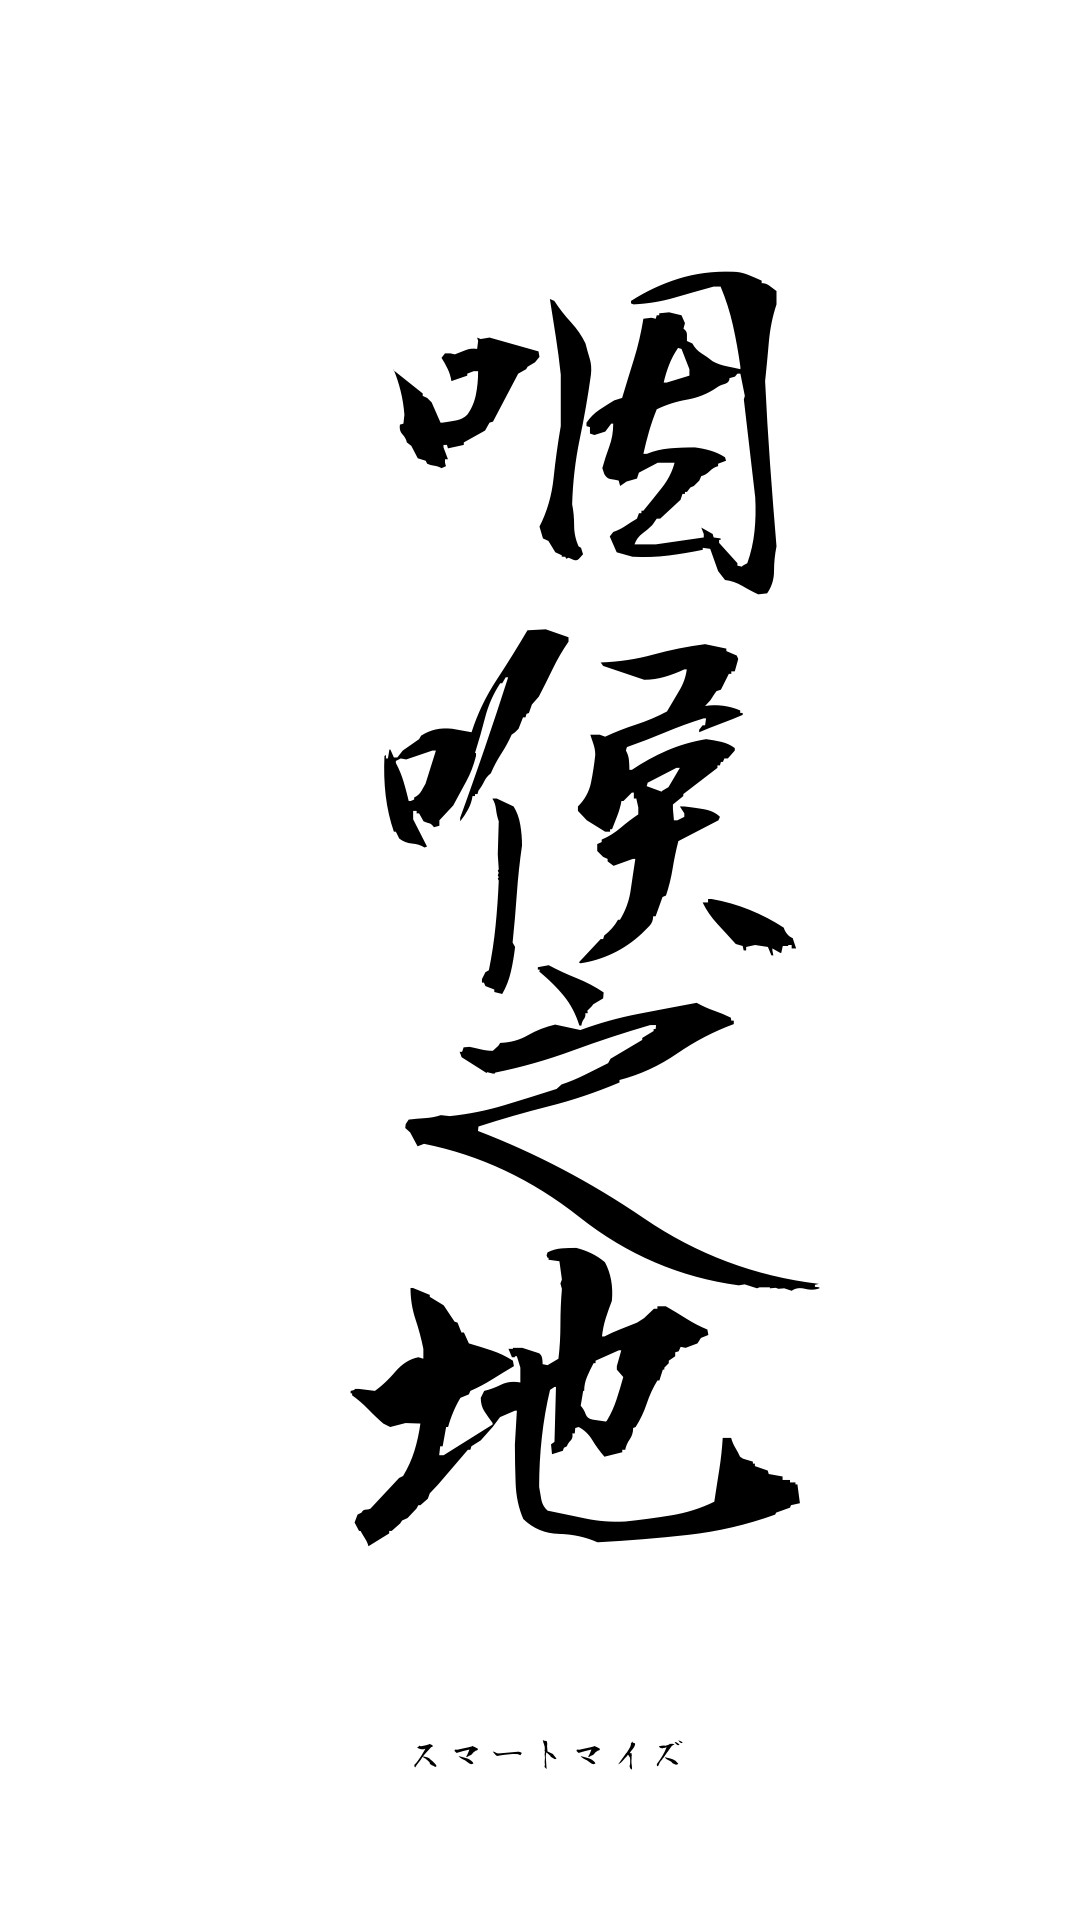 咽喉之地
スマートマイズ